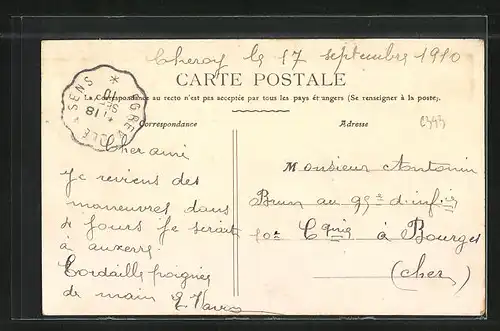 Cheroy le 17 septembre 1910
CARTE POSTALE
La Correspondance au recto n'est pas acceptée par tous les pays étrangers (Se renseigner à la poste).
Correspondance
Adresse
EGREVILLE A SENS
18
SEPT
10
Cher ami
Je reviens des
maneuvres dans
4 jours je serait
à auxerre.
Cordaille poignée
de main E.
Monsieur Antonin
Brun au 95e d'infie
10e Cgnie à Bourges
(Cher)